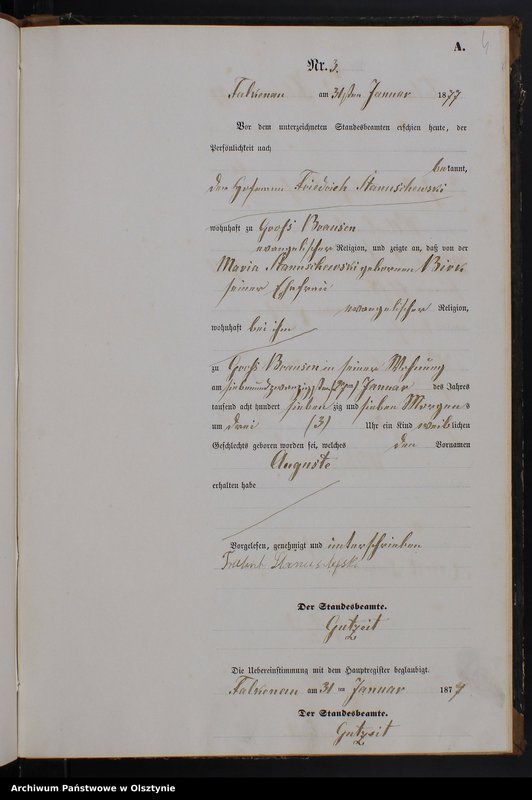 A.
4
Nr. 3.
Falkenau am 31sten Januar 1877
Vor dem unterzeichneten Standesbeamten erschien heute, der
Persönlichkeit nach
bekannt,
der Friedrich Stanuschewski
wohnhaft zu Groß Bransen
evangelischer Religion, und zeigte an, daß von der
Maria Stanuschewski geborenen
seiner Ehefrau
evangelischer Religion,
wohnhaft bei ihm
zu Groß Bransen in seiner Wohnung
am siebenundzwanzigsten (27ten) Januar des Jahres
tausend acht hundert siebenzig und sieben Morgens
um drei (3) Uhr ein Kind weiblichen
Geschlechts geboren worden sei, welches den Vornamen
Auguste
erhalten habe
Vorgelesen, genehmigt und unterschrieben
Der Standesbeamte.
Gutzeit
Die Uebereinstimmung mit dem Hauptregister beglaubigt.
Falkenau am 31 ten Januar 1877
Der Standesbeamte.
Gutzeit
Archiwum Państwowe w Olsztynie